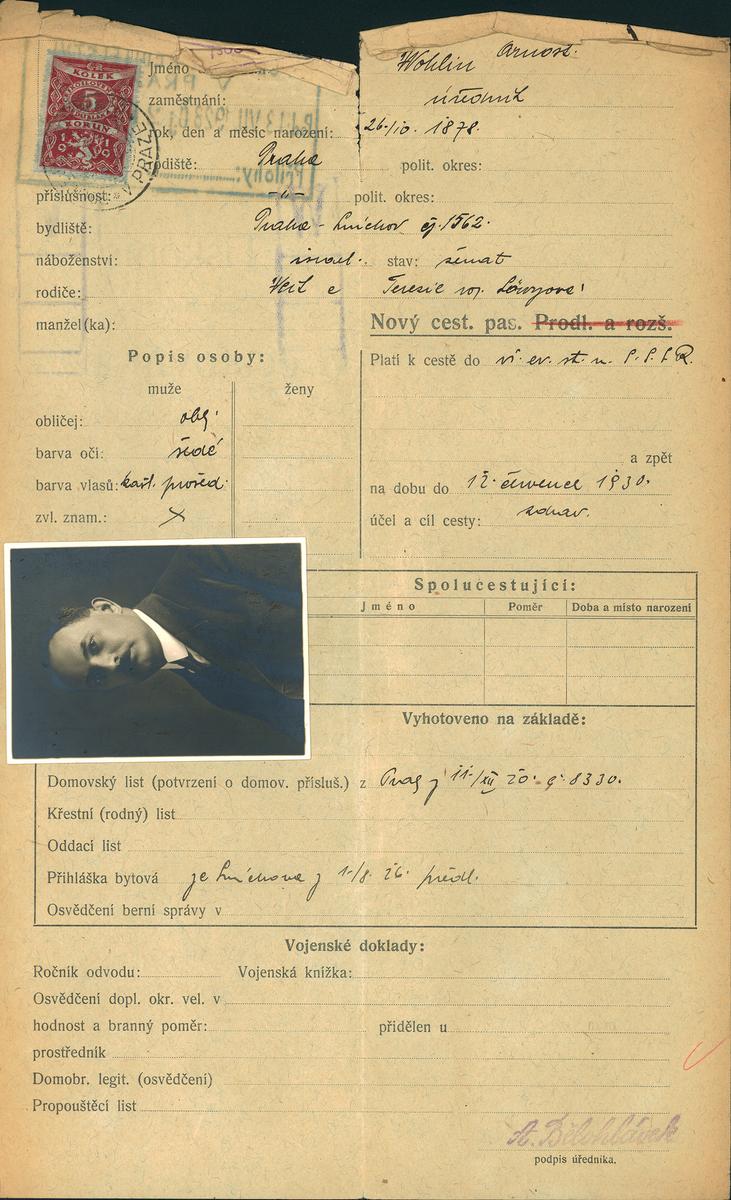 ČR
KOLEK
5
KORUN
V PRAZE
Jméno
Wohlin Arnošt.
zaměstnání:
úředník
rok, den a měsíc narození: 26./10. 1878.
rodiště: Praha polit. okres:
příslušnost: -"- polit. okres:
bydliště: Praha - Smíchov čj. 1562.
náboženství: israel. stav: ženat
rodiče: Veit a Terezie roz. Löwyová
manžel(ka):
Nový cest. pas. Prodl. a rozš.
Popis osoby:
muže ženy
obličej: obl.
barva očí: šedé
barva vlasů: kašt. prošed.
zvl. znam.: X
Platí k cestě do vš. ev. st. n. S.S.S.R.
a zpět
na dobu do 12. července 1930.
účel a cíl cesty: zdrav.
Spolucestující:
Jméno Poměr Doba a místo narození
Vyhotoveno na základě:
Domovský list (potvrzení o domov. přísluš.) z Prahy z 11/XII 20. č. 8330.
Křestní (rodný) list
Oddací list
Přihláška bytová ze Smíchova z 1./8. 26. předl.
Osvědčení berní správy v
Vojenské doklady:
Ročník odvodu: Vojenská knížka:
Osvědčení dopl. okr. vel. v
hodnost a branný poměr: přidělen u
prostředník
Domobr. legit. (osvědčení)
Propouštěcí list
A. Bělohlávek
podpis úředníka.